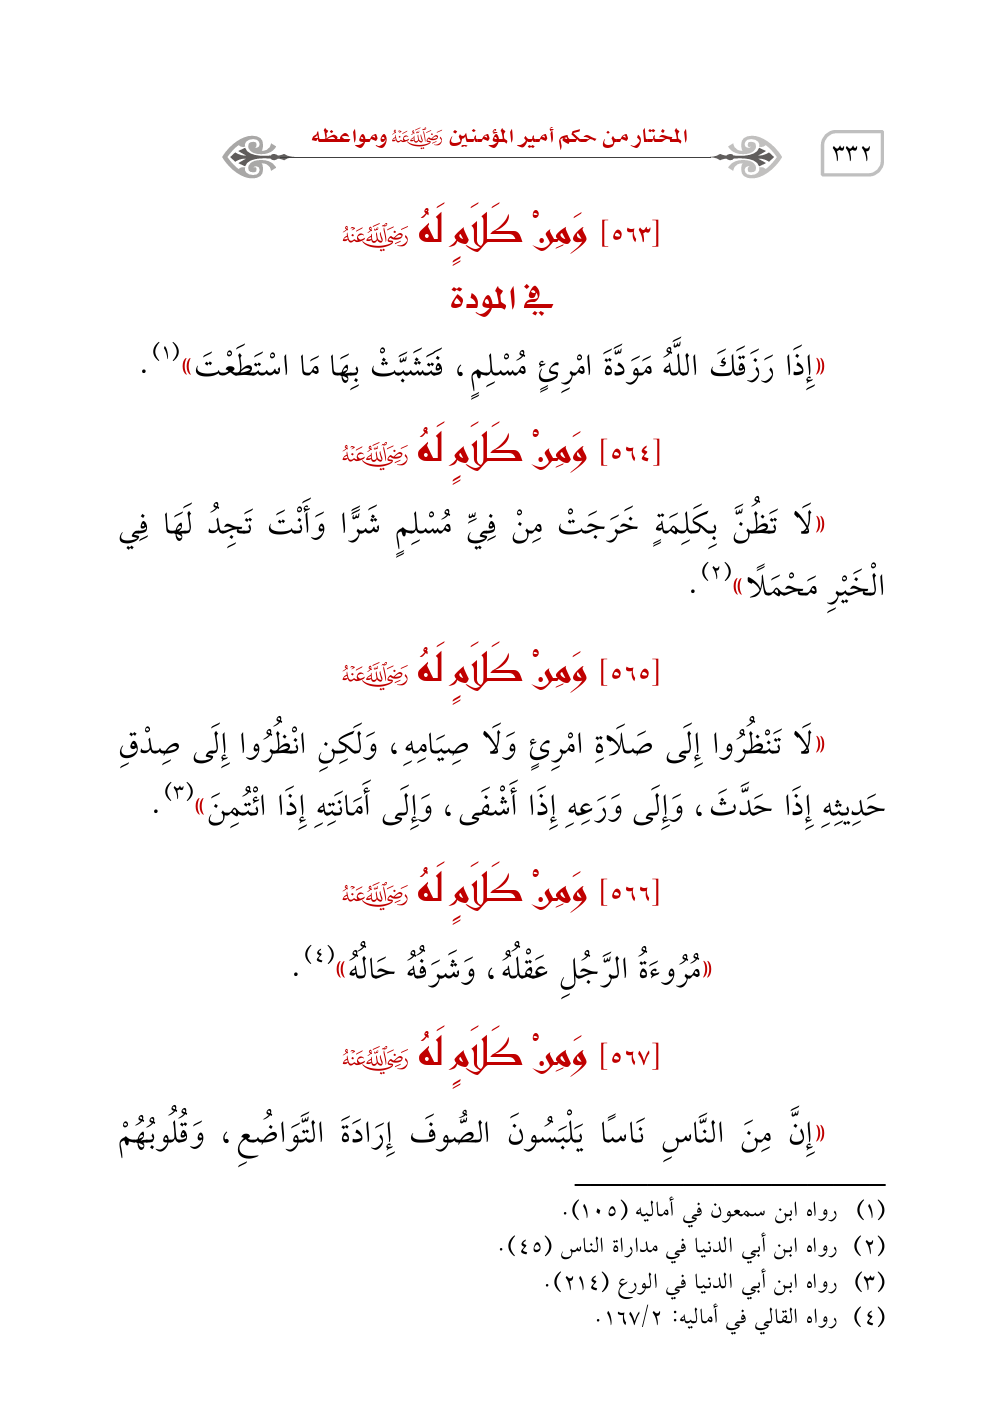 ٣٣٢
المختار من حكم أمير المؤمنين رَضِيَاللَّهُعَنْهُ ومواعظه
[٥٦٣] وَمِنْ كَلَامٍ لَهُ رَضِيَاللَّهُعَنْهُ
في المودة
«إِذَا رَزَقَكَ اللَّهُ مَوَدَّةَ امْرِئٍ مُسْلِمٍ، فَتَشَبَّثْ بِهَا مَا اسْتَطَعْتَ»(١).
[٥٦٤] وَمِنْ كَلَامٍ لَهُ رَضِيَاللَّهُعَنْهُ
«لَا تَظُنَّ بِكَلِمَةٍ خَرَجَتْ مِنْ فِيِّ مُسْلِمٍ شَرًّا وَأَنْتَ تَجِدُ لَهَا فِي
الْخَيْرِ مَحْمَلًا»(٢).
[٥٦٥] وَمِنْ كَلَامٍ لَهُ رَضِيَاللَّهُعَنْهُ
«لَا تَنْظُرُوا إِلَى صَلَاةِ امْرِئٍ وَلَا صِيَامِهِ، وَلَكِنِ انْظُرُوا إِلَى صِدْقِ
حَدِيثِهِ إِذَا حَدَّثَ، وَإِلَى وَرَعِهِ إِذَا أَشْفَى، وَإِلَى أَمَانَتِهِ إِذَا ائْتُمِنَ»(٣).
[٥٦٦] وَمِنْ كَلَامٍ لَهُ رَضِيَاللَّهُعَنْهُ
«مُرُوءَةُ الرَّجُلِ عَقْلُهُ، وَشَرَفُهُ حَالُهُ»(٤).
[٥٦٧] وَمِنْ كَلَامٍ لَهُ رَضِيَاللَّهُعَنْهُ
«إِنَّ مِنَ النَّاسِ نَاسًا يَلْبَسُونَ الصُّوفَ إِرَادَةَ التَّوَاضُعِ، وَقُلُوبُهُمْ
(١) رواه ابن سمعون في أماليه (١٠٥).
(٢) رواه ابن أبي الدنيا في مداراة الناس (٤٥).
(٣) رواه ابن أبي الدنيا في الورع (٢١٤).
(٤) رواه القالي في أماليه: ١٦٧/٢.